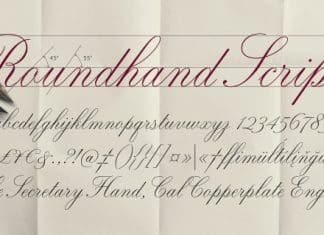 Roundhand Scrip
45° 55°
abcdefghijklmnopqrstuvwxyz 12345678
&.,?!@‡(){}[]¤»|«†ffimültilingü
Secretary Hand, Cal Copperplate Eng